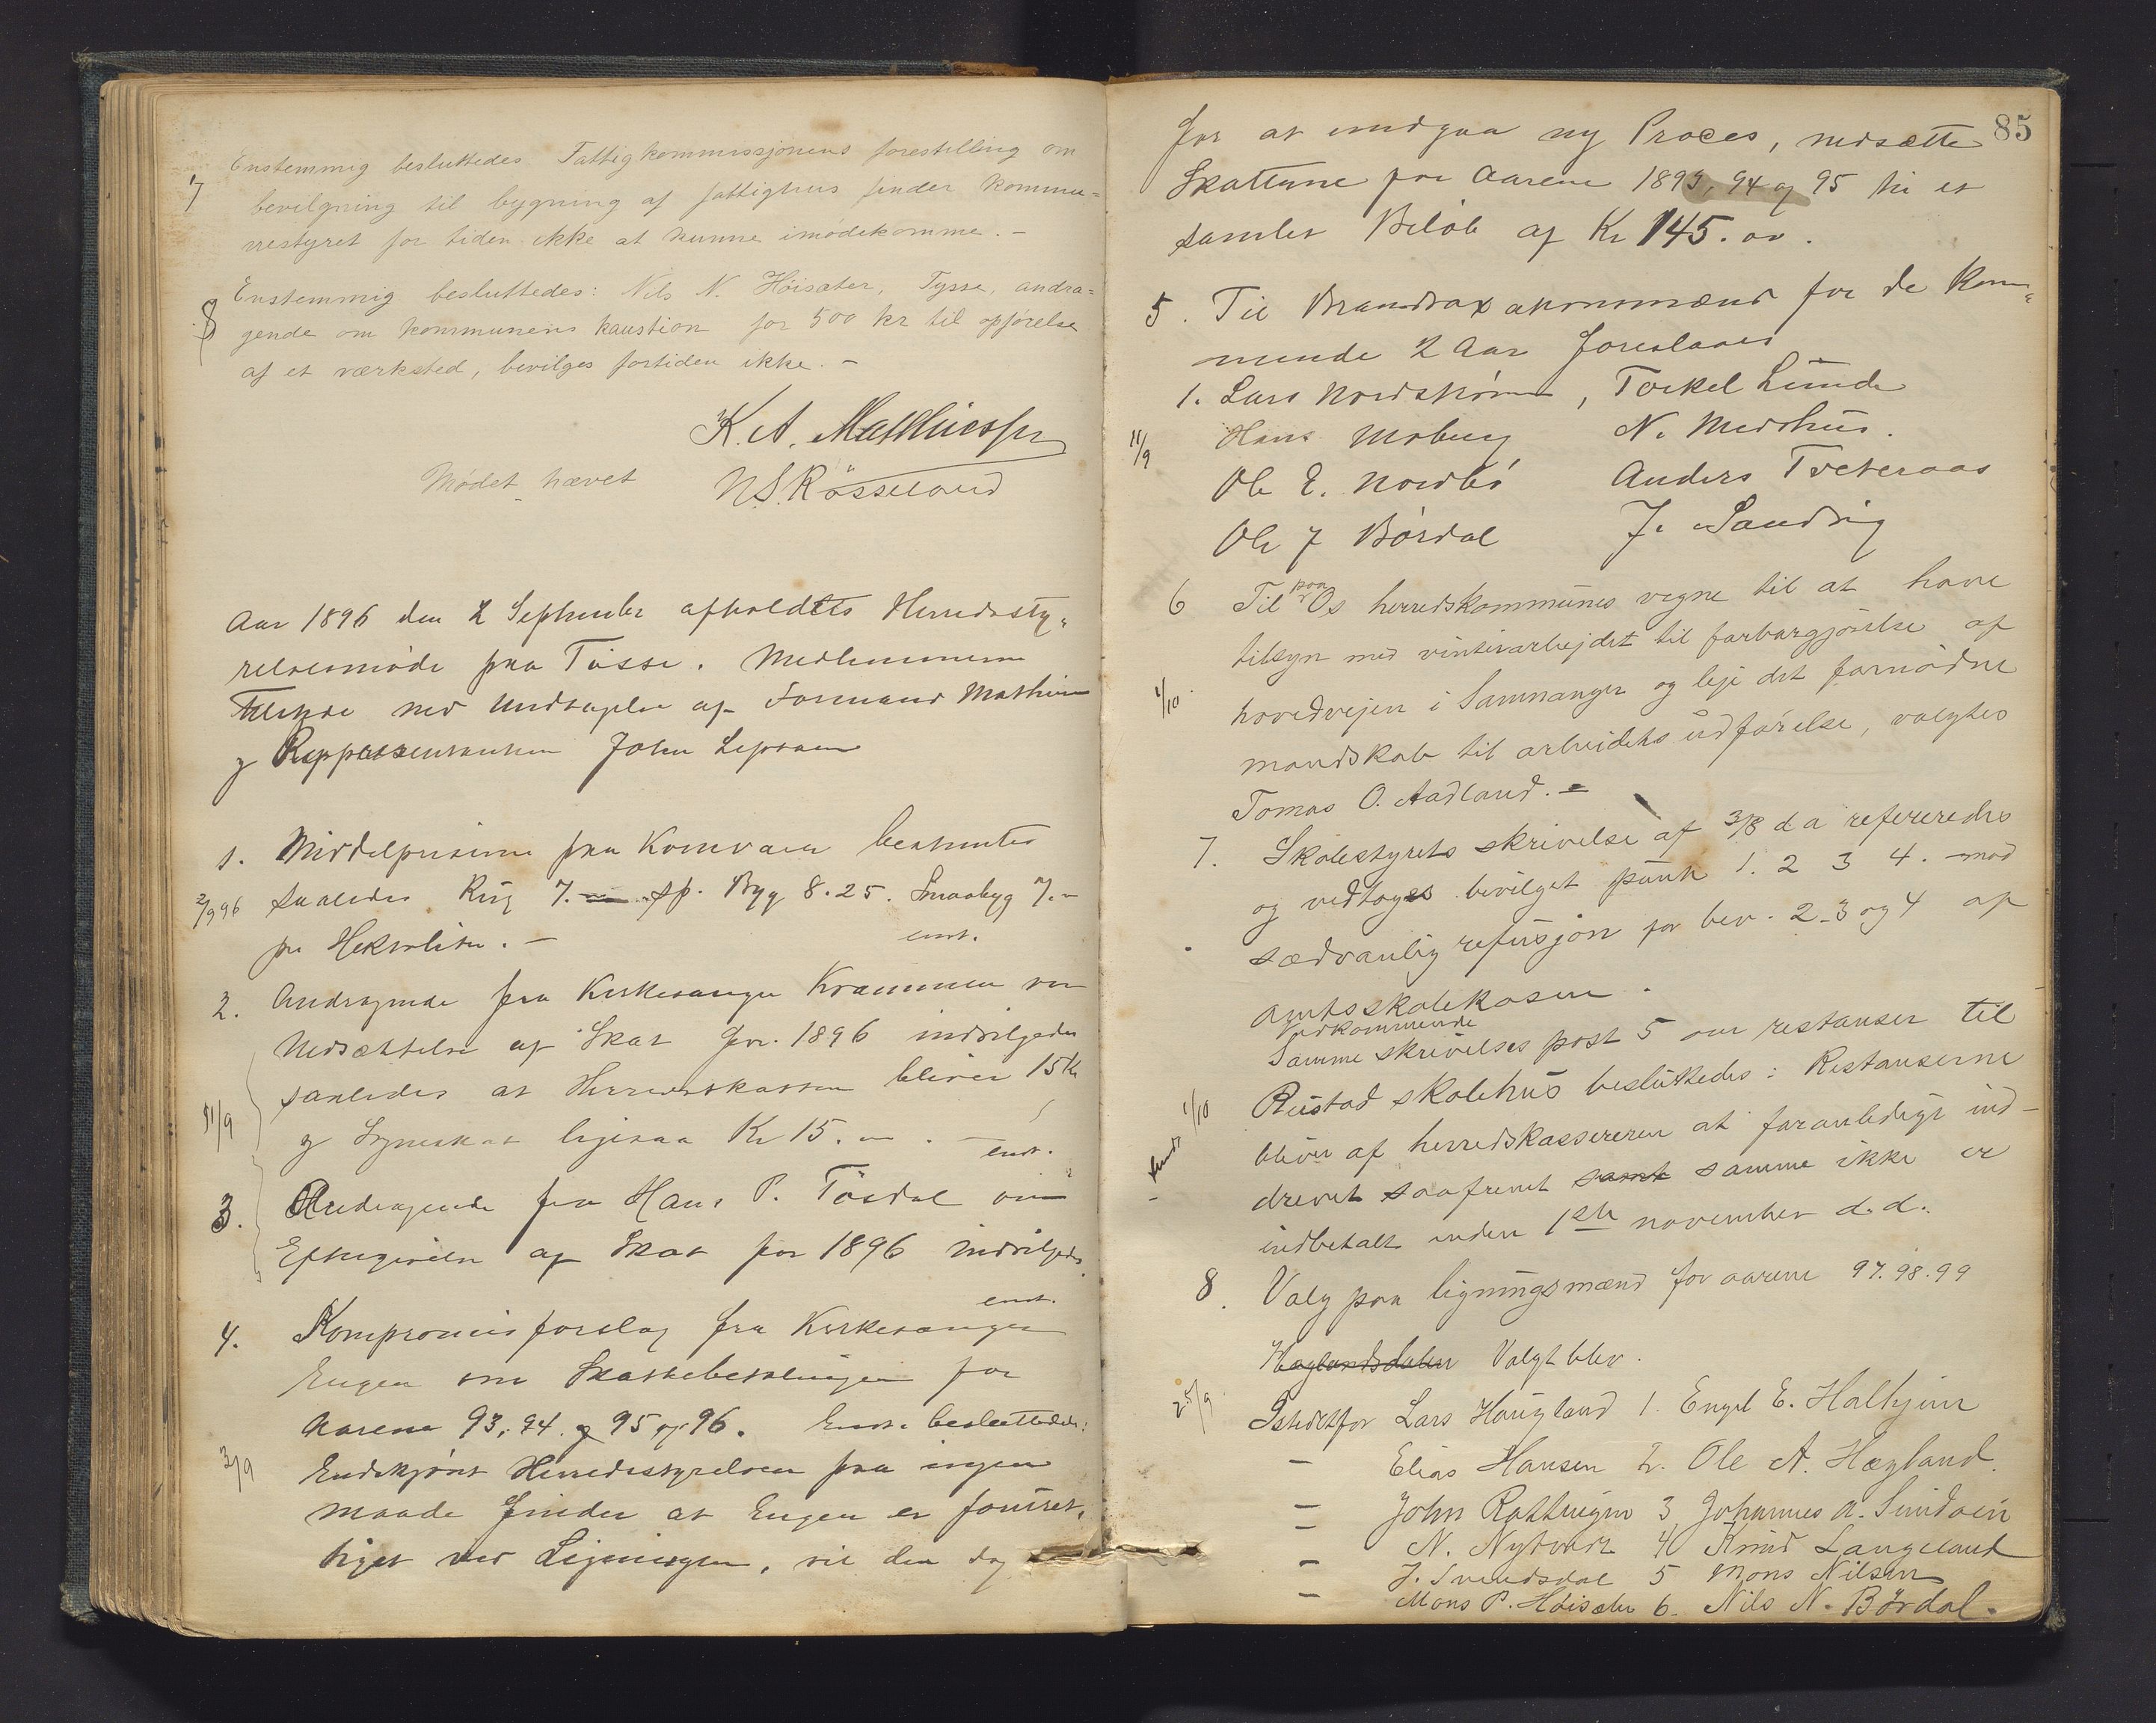 7 Enstemmig besluttedes Fattigkommissjonens forestilling om
bevilgning til bygning af fattighus finder kommu=
nestyret for tiden ikke at kunne imødekomme. –
8 Enstemmig besluttedes: Nils N. Høisæter, Tysse, andra=
gende om kommunens kaustion for 500 kr til opførelse
af et værksted, bevilges fortiden ikke. –
K. A. Mathiesen
Mødet hævet N S Røsseland
Aar 1896 den 2 September afholdtes Herredsty„
relsesmøde paa Tøsse. Medlemmerne
med Undtagelse af Formand Mathiesen
og Reppræsentanten John
1. Middelpriserne paa Kornvarer bestemtes
2/9 96 saaledes Rug 7.– Byg 8.25. Smaabyg 7.–
pr Hektoliter. – enst.
2. Andragende fra Kirkesanger Krammen om
Nedsættelse af Skat for 1896 indvilgedes
saaledes at Herredskassen bliver 15 Kr
11/9 og ligesaa Kr 15. – . – enst.
3. Andragende fra Hans P. Tøsdal om
Eftergivelse af Skat for 1896 indvilgedes.
enst.
4. Kompromisforslag fra Kirkesanger
Eugen om Skattebetalingen for
Aarene 93, 94 og 95 og 96. Enst. besluttedes:
2/9 Endskjønt Herredsstyrelsen paa ingen
maade finder at Eugen er foruret„
tiget ved Ligningen, vil den dog
85
for at undgaa ny Proces, nedsætte
Skatterne for Aarene 1893, 94 og 95 til et
samlet Beløb af Kr 145.00.
5. Til Brandtaxationsmænd for de kom„
mende 2 Aar foreslaaes
1. Lars Nordstrøm, Torkel Lunde
11/9 Hans Moberg N. Medhus.
Ole E. Nordbø Anders Tveteraas
Ole J Børdal J. Sandvig
6 Til paa Os herredskommunes vegne til at have
tilsyn med vinterarbejdet til farbargjørelse af
1/10 hovedvejen i Samnanger og leje det fornødne
mandskab til arbeidets udførelse, valgtes
Tomas O. Aadland. –
7. Skolestyrets skrivelse af 3/8 d a refereredes
og vedtoges bevilget punk 1. 2 3 4. mod
sædvanlig refusjon for bev. 2–3 og 4 af
amtsskolekasen.
Vedkommende
Samme skrivelses post 5 om restanser til
1/10 Rustad skolehus besluttedes: Restanserne
bliver af herredskassereren at foranledige ind–
drevet saafremt samt samme ikke er
indbetalt inden 1ste november d.d.
8. Valg paa ligningsmænd for aarene 97. 98. 99
Haglandsdalen Valgt blev.
25/9 Istedetfor Lars Haugland 1. Engel E. Halhjem
– Elias Hansen 2. Ole A. Hægland.
– John Røttingen 3 Johannes A. Sundøen
– N. Nytvedt 4 Knud Langeland
– J. Svendsdal 5 Mons Nilsen
– Mons P. Høisæter 6. Nils N. Børdal.